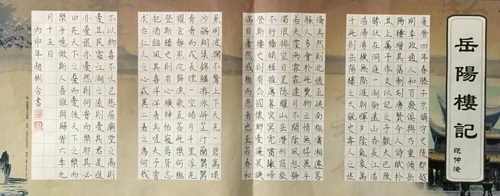 岳陽樓記
范仲淹
慶曆四年春滕子京謫守巴陵郡越
明年政通人和百廢具興乃重修岳
陽樓增其舊制刻唐賢今人詩賦於
其上屬予作文以記之予觀夫巴陵
勝狀在洞庭一湖銜遠山吞長江浩
浩湯湯橫無際涯朝暉夕陰氣象萬
千此則岳陽樓之大觀也前人之述備矣
然則北通巫峽南極瀟湘遷客騷
人多會於此覽物之情得無異乎若
夫霪雨霏霏連月不開陰風怒號
濁浪排空日星隱耀山岳潛形商旅
不行檣傾楫摧薄暮冥冥虎嘯猿啼
登斯樓也則有去國懷鄉憂讒畏譏
滿目蕭然感極而悲者矣至若春和景
明波瀾不驚上下天光一碧萬頃
沙鷗翔集錦鱗游泳岸芷汀蘭郁郁
青青而或長煙一空皓月千里浮光
躍金靜影沉璧漁歌互答此樂何極登
斯樓也則有心曠神怡寵辱偕忘
把酒臨風其喜洋洋者矣嗟夫予嘗
求古仁人之心或異二者之為何哉
不以物喜不以己悲居廟堂之高則
憂其民處江湖之遠則憂其君是進
亦憂退亦憂然則何時而樂耶其必曰
先天下之憂而憂後天下之樂而
樂乎噫微斯人吾誰與歸時六年九
月十五日
丙申年趙彬含書